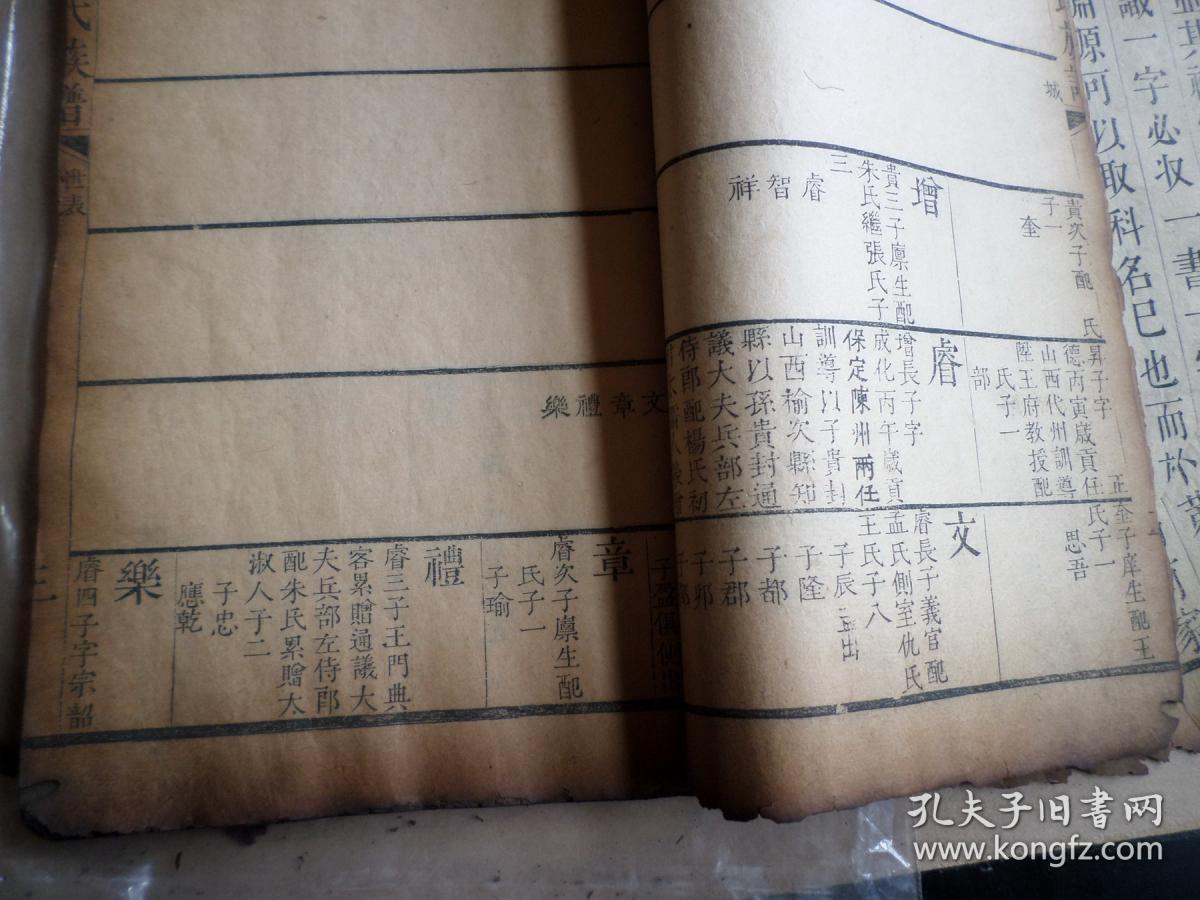 識一字必攻一書
源何以取科名已也而於
城
貴次子配　氏
子一
奎
增
貴三子廩生配
朱氏繼張氏子
三
睿智祥
昇子字　正
德丙寅歲貢任
山西代州訓導
陞王府教授配
氏子一
部
睿
增長子字
成化丙午歲貢
保定陳州兩任
訓導以子貴封
山西榆次縣知
縣以孫貴封通
議大夫兵部左
侍郎配楊氏初
文章禮樂
奎子庠生配王
氏子一
思吾
文
睿長子義官配
孟氏側室仇氏
王氏子八
子辰孟出
子隆
子都
子郡
子卯
章
睿次子廩生配
氏子一
子瑜
禮
睿三子王門典
客累贈通議大
夫兵部左侍郎
配朱氏累贈太
淑人子二
子忠
應乾
樂
睿四子字宗韶
氏族譜
世表
孔夫子旧书网
www.kongfz.com